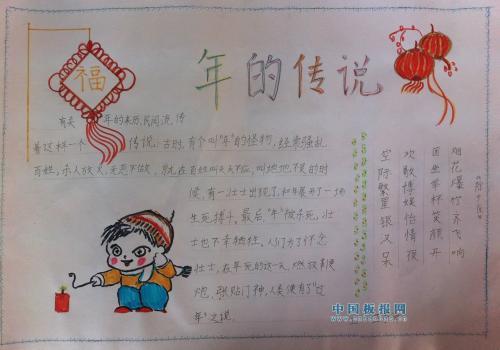 年的传说
福
有关 年的来历,民间流传
着这样一个 传说:古时,有个叫"年"的怪物,经常骚乱
百姓,杀人放火,无恶不做,就在百姓叫天天不应,叫地地不灵的时
候,有一壮士出现了,和年展开了一场
生死搏斗。最后"年"被杀死,壮
士也不幸牺牲。人们为了怀念
壮士,在年死的这一天,燃放鞭
炮,张贴门神,人类便有了"过
年"之说。
烟花爆竹齐飞响
围坐举杯笑颜开
欢歌博娱怡情夜
空际繁星银汉呆
中国板报网